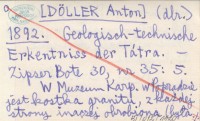 [DÖLLER Anton] (dbr.)
1892. Geologisch-technische
Erkentniss der Tátra. —
Zipser Bote 30, nr. 35: 5.
W Muzeum Karp. w Popradzie
jest kostka granitu, z każdej
strony inaczej obrobiona